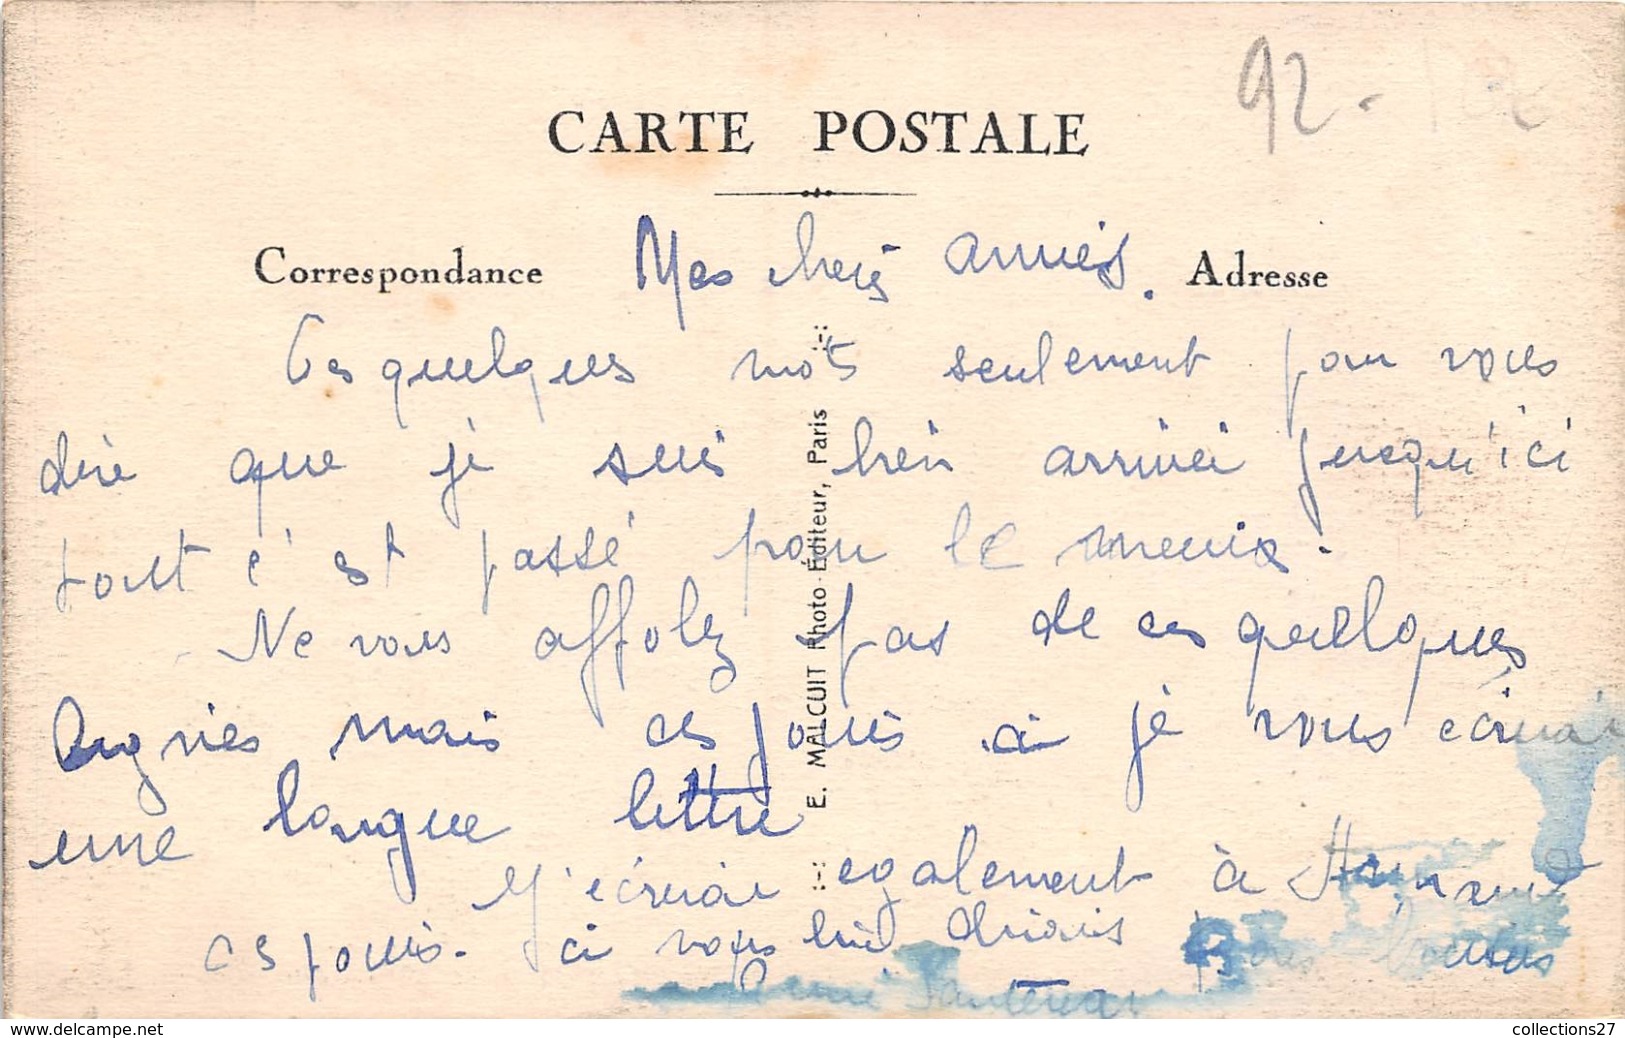 92-
CARTE POSTALE
Correspondance
Adresse
Mes chers amies.
Ces quelques mots seulement pour vous
dire que je suis bien arrivé jusqu'ici
tout c'est passé pour le mieux.
Ne vous affolez pas de ces quelques
lignes mais ces jours ci je vous écrirai
une longue lettre
J'écrirai egalement à
ces jours.
E. MALCUIT Photo-Éditeur, Paris
collections27
www.delcampe.net